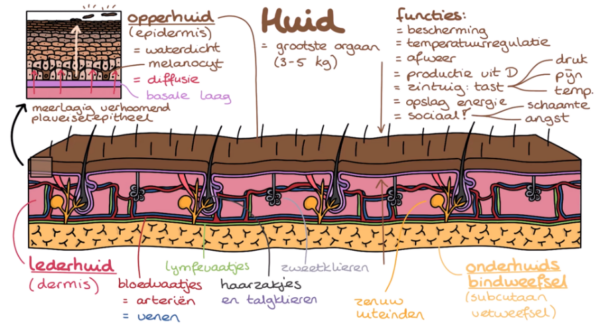 opperhuid
(epidermis)
= waterdicht
melanocyt
= diffusie
basale laag
meerlagig verhoornend
plaveiselepitheel
Huid
= grootste orgaan
(3-5 kg)
functies:
= bescherming
= temperatuurregulatie
= afweer
= productie vit D
= zintuig: tast
druk
pijn
temp.
= opslag energie
= sociaal!
schaamte
angst
lederhuid
(dermis)
bloedvaatjes
= arteriën
= venen
lymfevaatjes
haarzakjes
en talgklieren
zweetklieren
zenuw
uiteinden
onderhuids
bindweefsel
(subcutaan
vetweefsel)